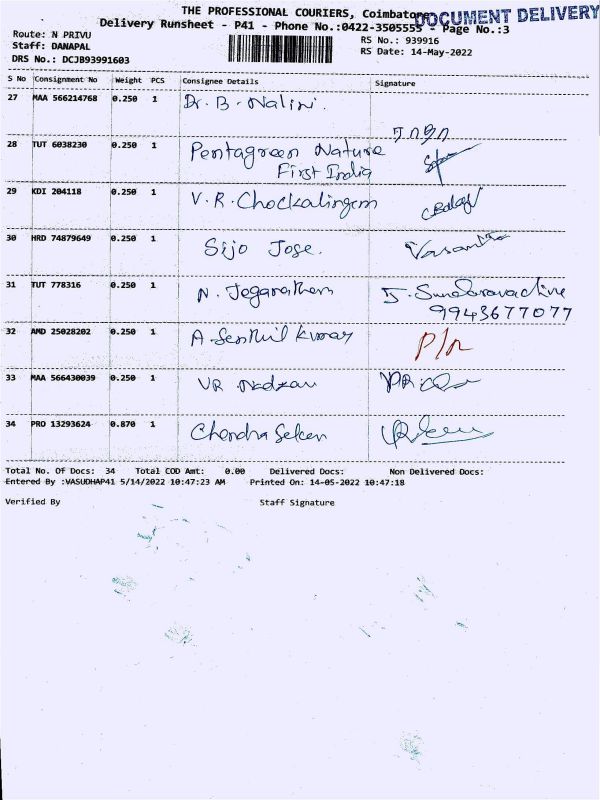 THE PROFESSIONAL COURIERS, Coimbatore
DOCUMENT DELIVERY
Delivery Runsheet - P41 - Phone No.:0422-3505555 - Page No.:3
Route: N PRIVU
RS No.: 939916
Staff: DANAPAL
RS Date: 14-May-2022
DRS No.: DCJB93991603
S No Consignment No Weight PCS Consignee Details Signature
27 MAA 566214768 0.250 1 Dr. B. Nalini.
28 TUT 6038230 0.250 1 Pentagreen Nature
First India
29 KDI 204118 0.250 1 V. R. Chockalingam
30 HRD 74879649 0.250 1 Sijo Jose. Vasantha
31 TUT 778316 0.250 1 N. Jegarathem
9943677077
32 AMD 25028202 0.250 1 A. Senthil Kumar
33 MAA 566430039 0.250 1 VR
34 PRO 13293624 0.870 1 Chandra Seken
Total No. Of Docs: 34 Total COD Amt: 0.00 Delivered Docs: Non Delivered Docs:
Entered By :VASUDHAP41 5/14/2022 10:47:23 AM Printed On: 14-05-2022 10:47:18
Verified By Staff Signature